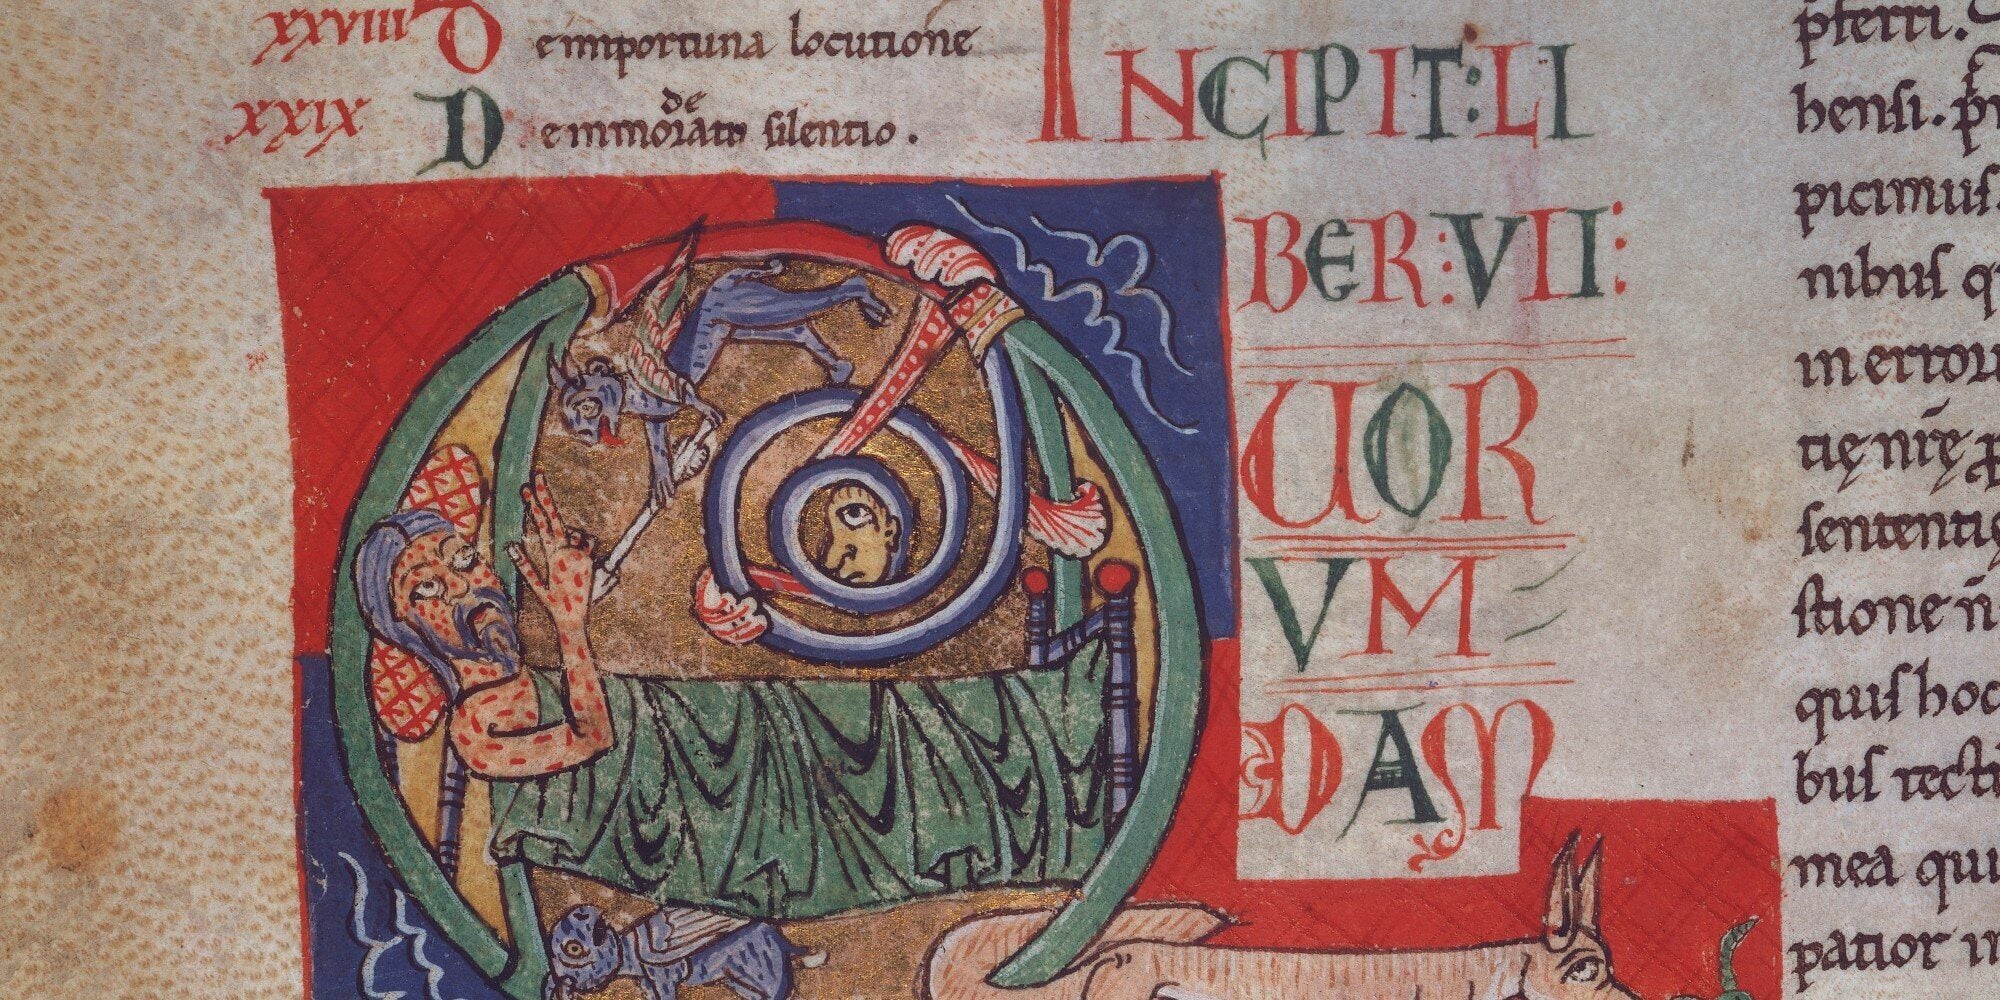 xxviii De importuna locutione
xxix De immoderato silentio.
INCIPIT: LI
BER: VII:
QUOR
VM
DAM
pferri.
hensi.
picimus
nibus
in errorū
tię nr̄ę
sententię
stione n̄
quis hoc
bus recti
mea qui
patior in